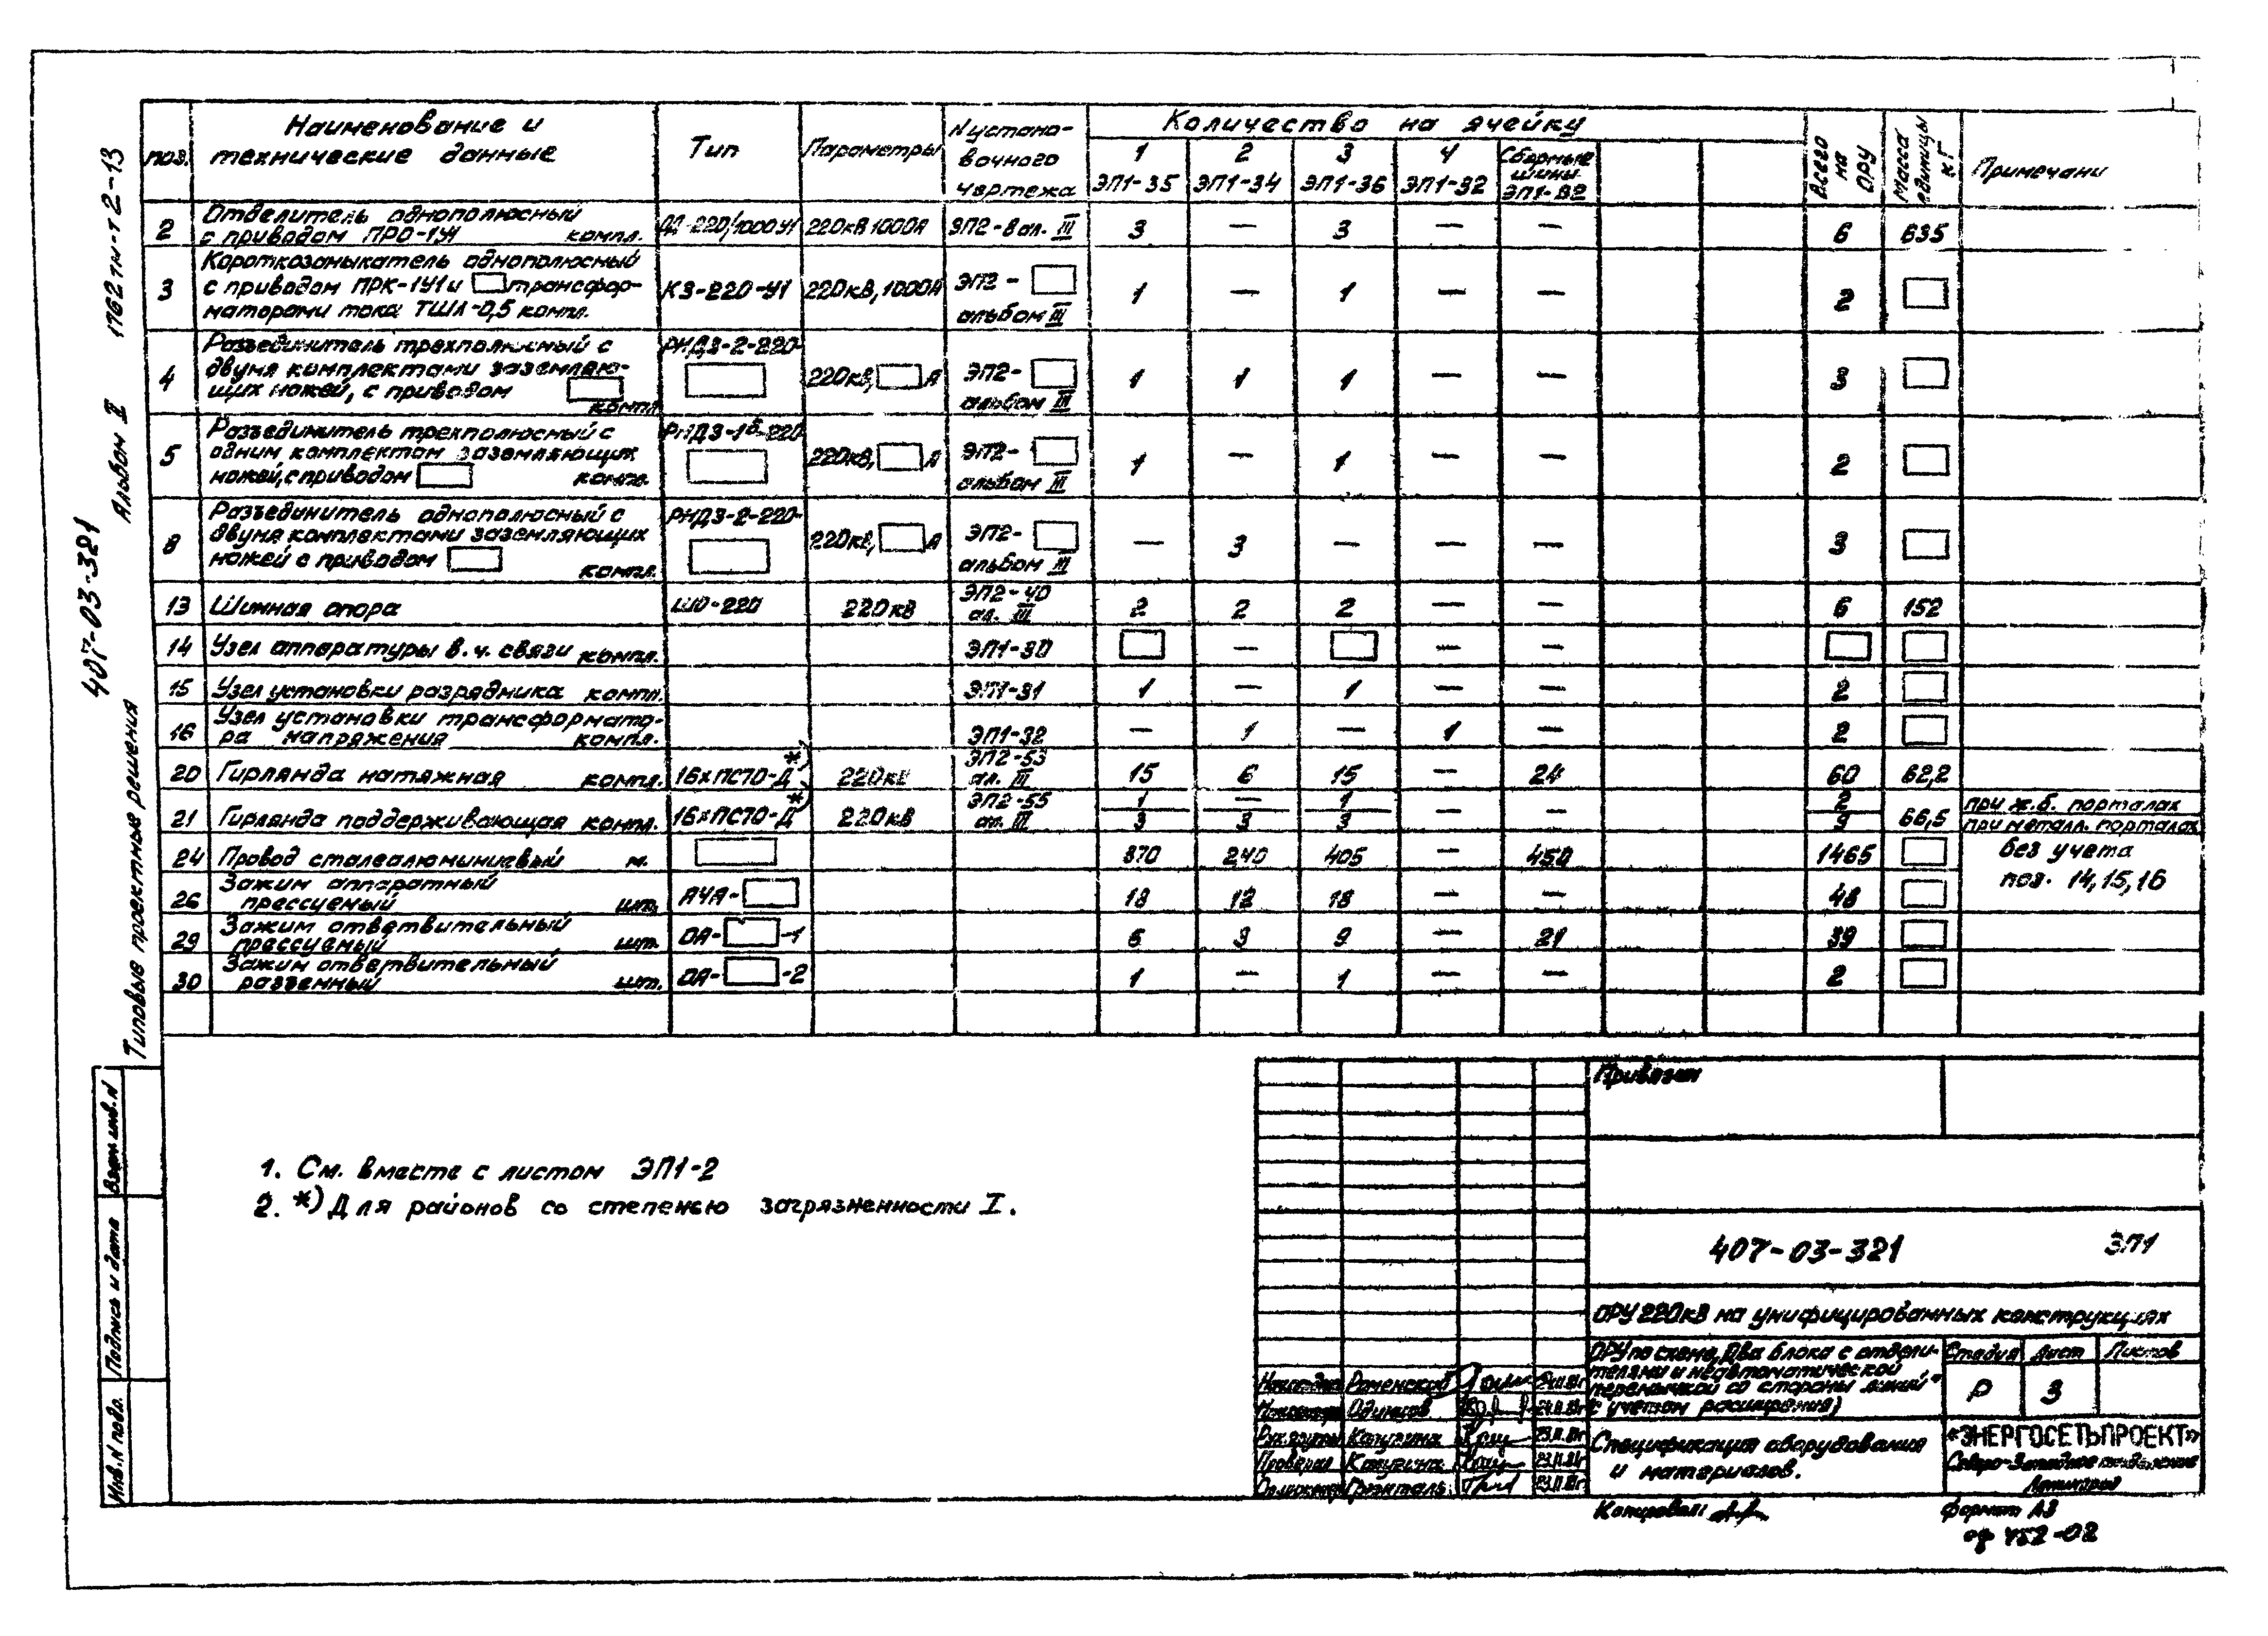 407-03-321
Типовые проектные решения Альбом II 1762тм-т2-13
поз.
Наименование и
технические данные
Тип
Параметры
N устано-
вочного
чертежа
Количество на ячейку
1
ЭП1-35
2
ЭП1-34
3
ЭП1-36
4
ЭП1-32
Сборные
шины
ЭП1-32
Всего
на
ОРУ
Масса
единицы
кг
Примечани
2 Отделитель однополюсный
с приводом ПРО-1У1 компл. ОД-220/1000У1 220кВ 1000А ЭП2-8 ал. III 3 — 3 — — 6 635
3 Короткозамыкатель однополюсный
с приводом ПРК-1У1 и трансфор-
маторами тока ТШЛ-0,5 компл. КЗ-220-У1 220кВ, 1000А ЭП2-
альбом III 1 — 1 — — 2
4 Разъединитель трехполюсный с
двумя комплектами заземляю-
щих ножей, с приводом
компл. РНДЗ-2-220- 220кВ, А ЭП2-
альбом III 1 1 1 — — 3
5 Разъединитель трехполюсный с
одним комплектом заземляющих
ножей, с приводом компл. РНДЗ-1б-220 220кВ, А ЭП2-
альбом III 1 — 1 — — 2
8 Разъединитель однополюсный с
двумя комплектами заземляющих
ножей с приводом
компл. РНДЗ-2-220- 220кВ, А ЭП2-
альбом III — 3 — — — 3
13 Шинная опора ШО-220 220кВ ЭП2-40
ал. III 2 2 2 — — 6 152
14 Узел аппаратуры в.ч. связи компл. ЭП1-30 — — —
15 Узел установки разрядника компл. ЭП1-31 1 — 1 — — 2
16 Узел установки трансформато-
ра напряжения компл. ЭП1-32 — 1 — 1 — 2
20 Гирлянда натяжная компл. 16хПС70-Д *) 220кВ ЭП2-53
ал. III 15 6 15 — 24 60 62,2
21 Гирлянда поддерживающая компл. 16хПС70-Д *) 220кВ ЭП2-55
ал. III 1 — 1 — — 2 66,5 при ж.б. порталах
3 3 3 9 при металл. порталах
24 Провод сталеалюминиевый м. 370 240 405 — 450 1465 без учета
поз. 14, 15, 16
26 Зажим аппаратный
прессуемый шт. А4А- 18 12 18 — — 48
29 Зажим ответвительный
прессуемый шт. ОА- -1 6 3 9 — 21 39
30 Зажим ответвительный
разъемный шт. ОА- -2 1 — 1 — — 2
1. См. вместе с листом ЭП1-2
2. *) Для районов со степенью загрязненности I.
Взам. инв. N
Подпись и дата
Инв. N подл.
Привязан
407-03-321 ЭП1
ОРУ 220кВ на унифицированных конструкциях
ОРУ по схеме „Два блока с отдели-
телями и неавтоматической
перемычкой со стороны линий"
с учетом расширения)
Стадия Лист Листов
Р 3
Роменский
Одинцов
Рук. группы Капугина 23.11.81г
Проверил Капугина 23.11.81г
23.11.81г
Спецификация оборудования
и материалов.
«ЭНЕРГОСЕТЬПРОЕКТ»
Северо-Западное отделение
Ленинград
Копировал:
Формат А3